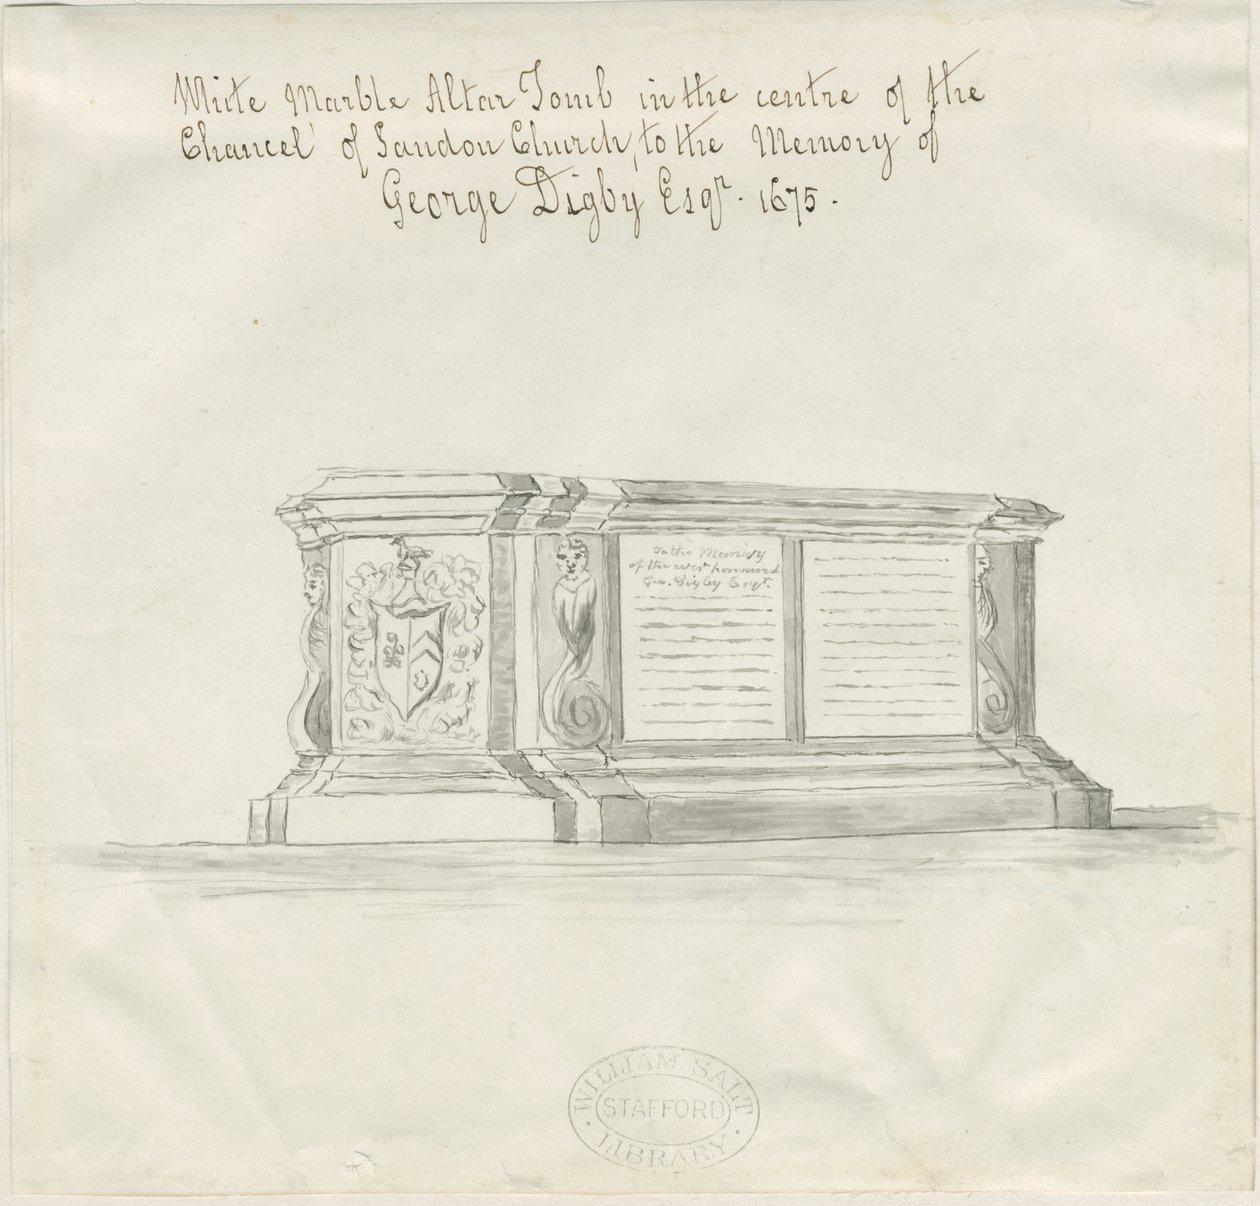 White Marble Altar Tomb in the centre of the
Chancel of Sandon Church, to the Memory of
George Digby Esqr. 1675.
To the Memory
of the ever honoured
Geo. Digby Esqr.
WILLIAM SALT
STAFFORD
LIBRARY